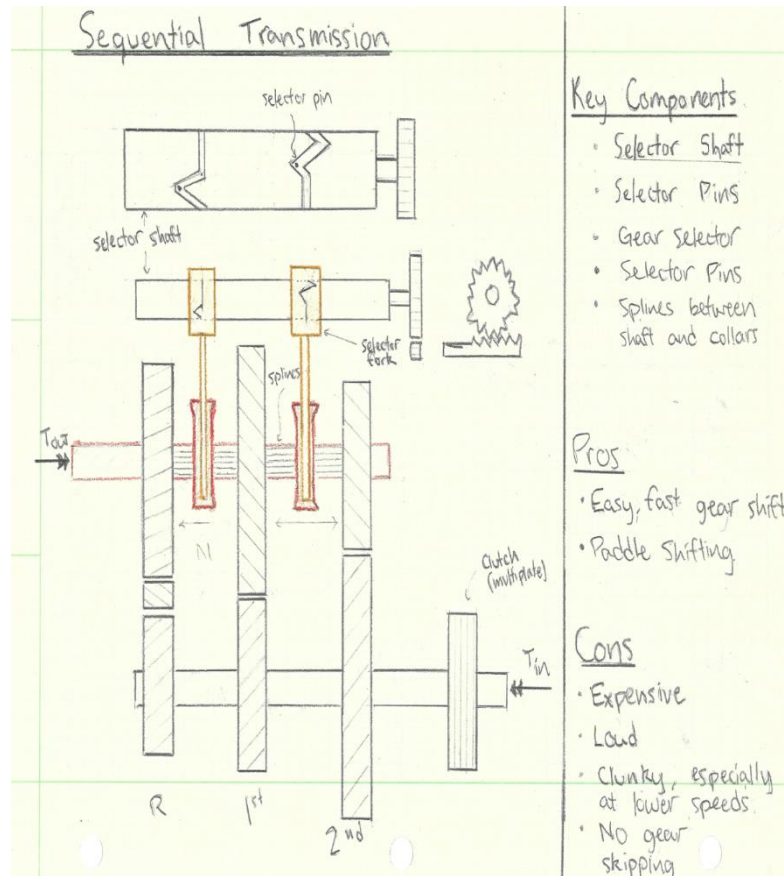 Sequential Transmission
selector pin
selector shaft
selector fork
splines
Tout
N
clutch
(multiplate)
Tin
R
1st
2nd
Key Components
• Selector Shaft
• Selector Pins
• Gear selector
• Selector Pins
• Splines between
shaft and collars
Pros
• Easy, fast gear shift
• Paddle shifting
Cons
• Expensive
• Loud
• Clunky, especially
at lower speeds.
• No gear
skipping